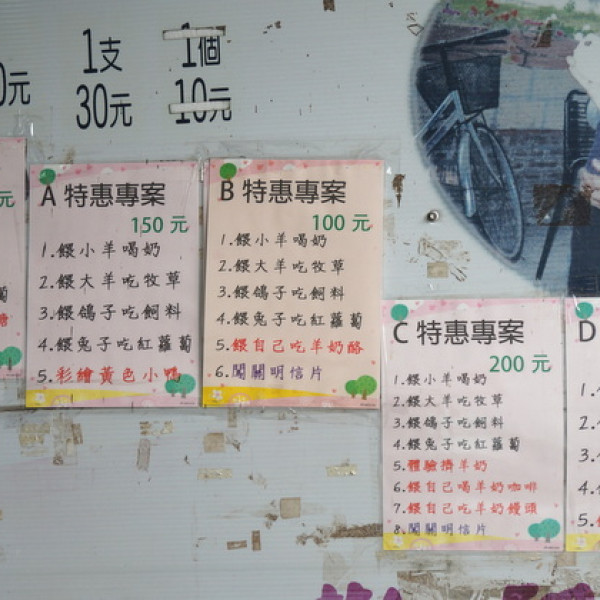 1支
30元
1個
10元
0元
元
A 特惠專案
150 元
1.餵小羊喝奶
2.餵大羊吃牧草
3.餵鴿子吃飼料
4.餵兔子吃紅蘿蔔
5.彩繪黃色小鴨
B 特惠專案
100 元
1.餵小羊喝奶
2.餵大羊吃牧草
3.餵鴿子吃飼料
4.餵兔子吃紅蘿蔔
5.餵自己吃羊奶酪
6.闖關明信片
C 特惠專案
200 元
1.餵小羊喝奶
2.餵大羊吃牧草
3.餵鴿子吃飼料
4.餵兔子吃紅蘿蔔
5.體驗擠羊奶
6.餵自己喝羊奶咖啡
7.餵自己吃羊奶饅頭
8.闖關明信片
D
1.
2.
3.
4.
5.